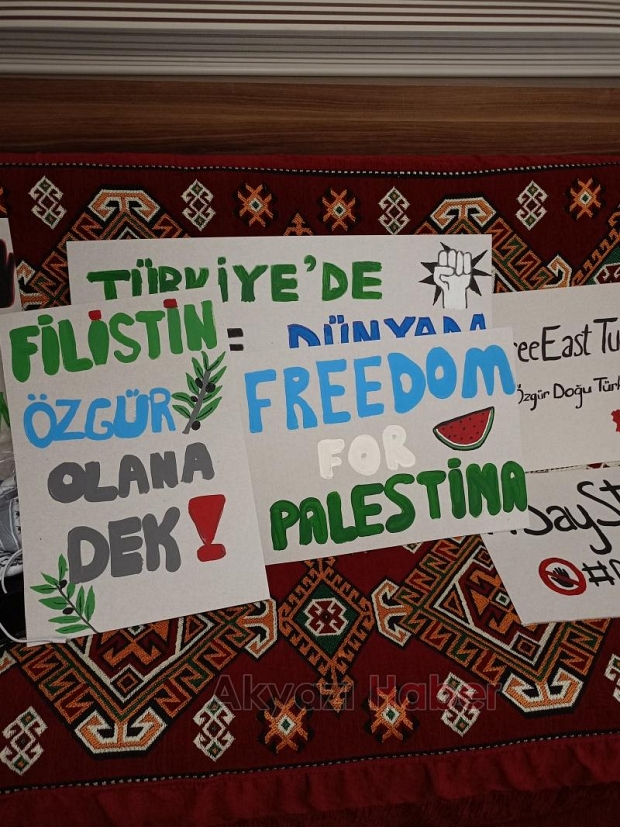 TÜRKİYE'DE
=
DÜNYADA
FİLİSTİN
ÖZGÜR
OLANA
DEK!
FREEDOM
FOR
PALESTINA
East
Özgür Doğu
Say
Akyazı Haber